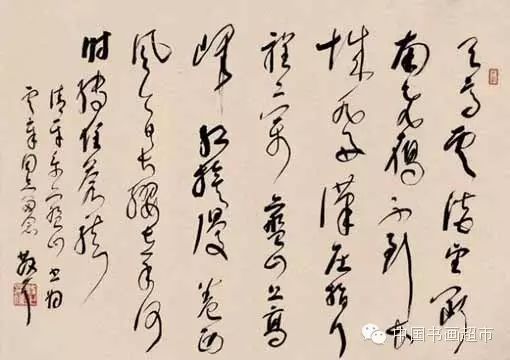 天高雲淡望断
南飛雁不到长
城非好漢屈指行
程二万六盘山上高
峰红旗漫卷西
风今日长缨在手何
时缚住苍龙
清平乐六盘山书为
雲章同志留念散耳
中国书画超市